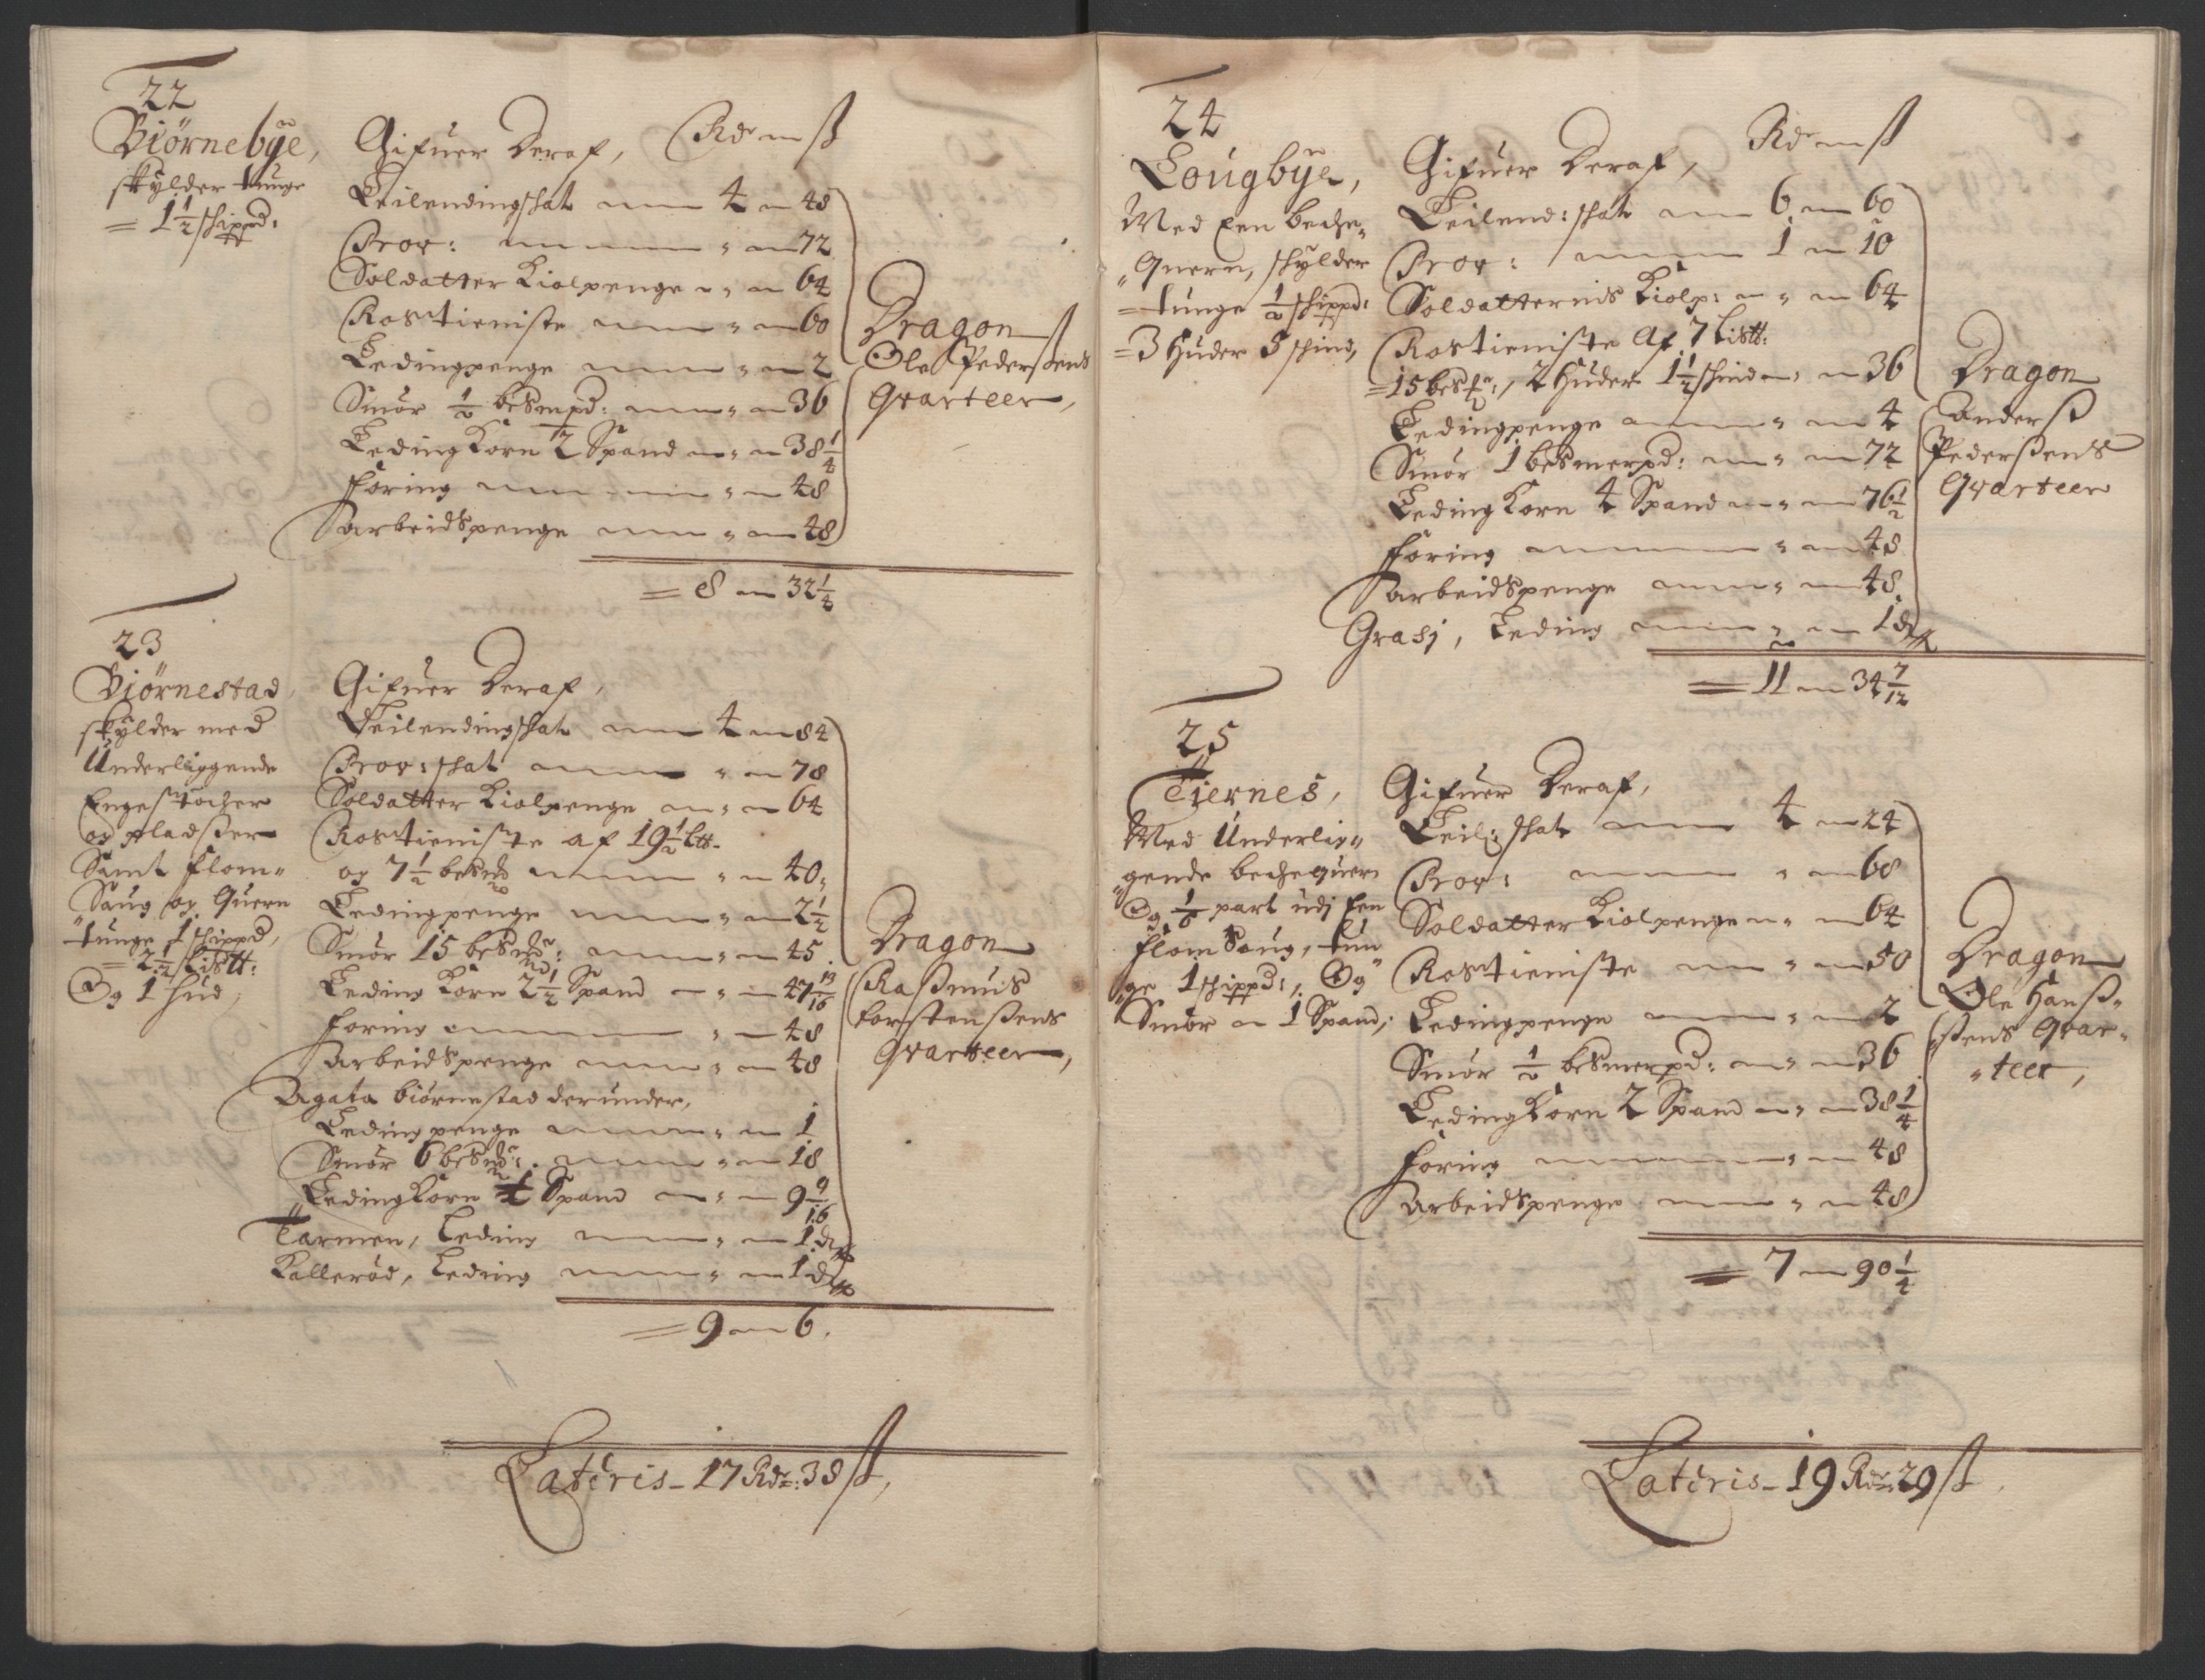 22
Biörnebÿe,
skÿlder tunge
= 1 1/2 schippd:
Gifuer Deraf, Rdr ß
Leilendingschat 4 48
Prov: " 72
Soldatter Kiolpenge " 64
Rostieniste " 60
Ledingpenge " 2
Smör 1/2 besmpd: " 36
Leding Korn 2 Spand " 38 1/4
foring " 48
arbeidspenge " 48
Dragon
Ole Pederßens
Qvarteer,
= 8 32 1/4
23
Biörnestad,
skÿlder med
Underliggende
Engestöcher
og pladßer
Samt flom=
Saug og Quern
tunge 1 schippd,
= 2 1/2 Listt:
Og 1 hud,
Gifuer Deraf,
Leilendingschat 4 84
Prov: schat " 78
Soldatter Kiolpenge " 64
Rostieniste af 19 1/2 Ltt.
og 7 1/2 besmr " 40
Ledingpenge " 2 1/2
Smör 15 besmr: " 45
Leding Korn 2 1/2 Spand " 47 13/16
foring " 48
arbeidspenge " 48
Agata biörnestad derunder,
Ledingpenge " 1
Smör 6 besmr: " 18
Leding Korn Spand " 9 9/16
Tarmen, Leding " 1 d
Kallerød, Leding " 1 d
Dragon
Raßmus
torstenßens
qvarteer,
= 9 6.
Lateris - 17 Rdr: 38 ß,
24
Lougbÿe,
Med Een beche=
Quern, skÿlder
=tunge 1/2 schippd:
=3 Huder 5 schind,
Gifuer Deraf, Rdr ß
Leilend: schat 6 60
Prov: 1 10
Soldatternis Kiolp: " 64
Rostieniste Af 7 Listt:
=15 besr:, 2 Huder 1 1/2 schind " 36
Ledingpenge " 4
Smör 1 besmerpd: " 72
Leding Korn 4 Spand " 76 1/2
föring " 48
arbeidspenge " 48
Grasj, Leding " 1 d
Dragon
anderß
Pederßens
Qvarteer
= 11 34 7/12
25
Tiernes,
Med Underlig=
gende bechequern
Og 1/6 part udj Een
flom Saug, tun
ge 1 schippd:, Og
Smör 1 Spand,
Gifuer Deraf,
Leil: schat 4 24
Prov: " 68
Soldatter Kiolpenge " 64
Rostieniste " 50
Ledingpenge " 2
Smör 1/2 besmerpd: " 36
Leding Korn 2 Spand " 38 1/4
foring " 48
arbeidspenge " 48
Dragon
Ole Hanß=
ßens Qvar=
=teer,
= 7 90 1/4
Lateris - 19 Rdr 29 ß.